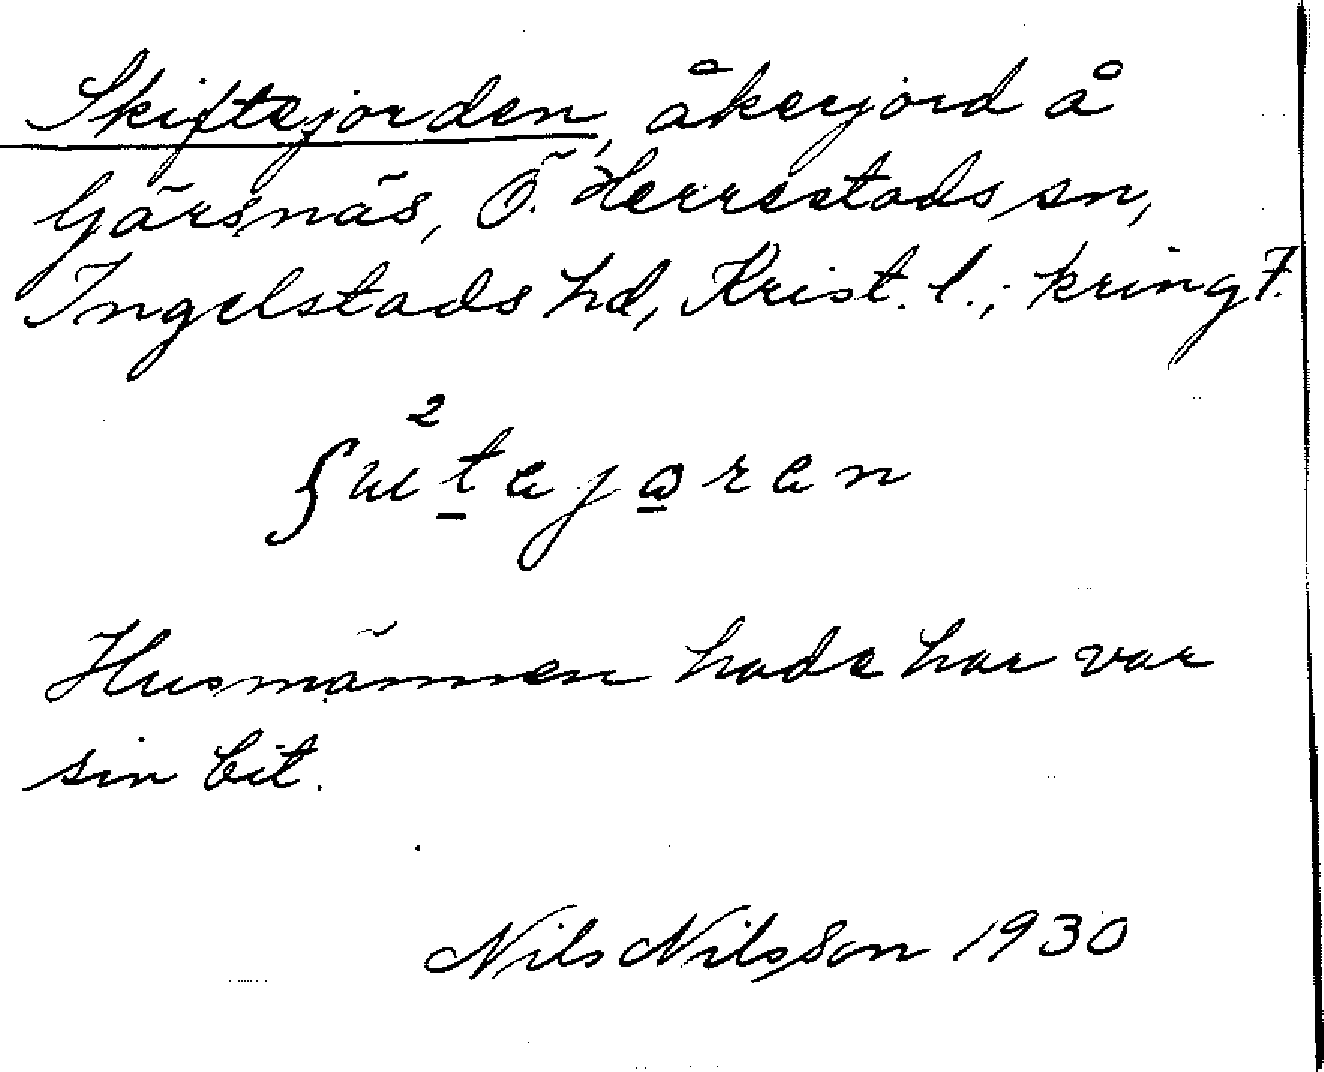 Skiftejorden, åkerjord å
Gärsnäs, Ö. Herrestads sn,
Ingelstads hd, Krist. l.; kring 7.
Husmännen hade har var
sin bit.
Nils Nilsson 1930